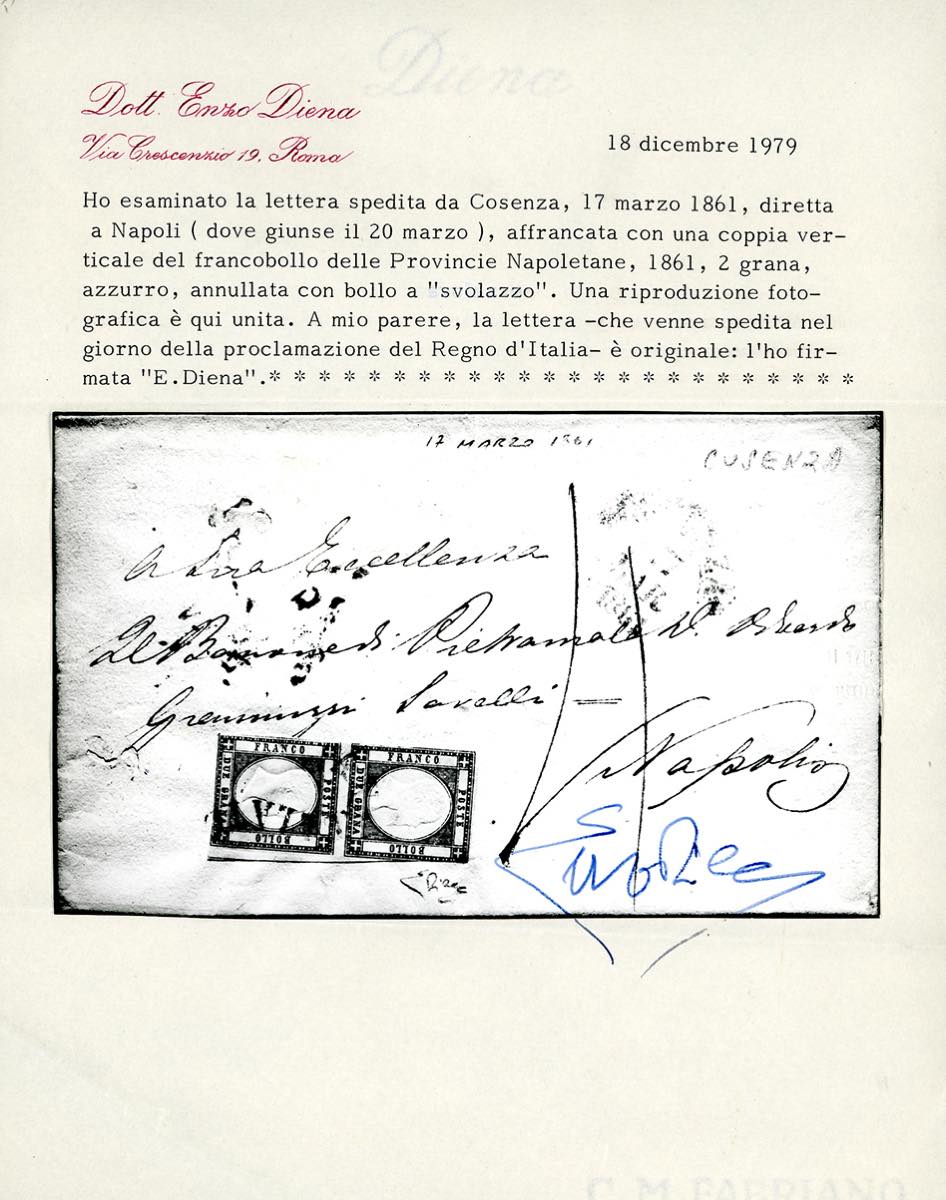 Diena
Dott. Enzo Diena
Via Crescenzio 19, Roma
18 dicembre 1979
Ho esaminato la lettera spedita da Cosenza, 17 marzo 1861, diretta
a Napoli ( dove giunse il 20 marzo ), affrancata con una coppia ver-
ticale del francobollo delle Provincie Napoletane, 1861, 2 grana,
azzurro, annullata con bollo a "svolazzo". Una riproduzione foto-
grafica è qui unita. A mio parere, la lettera -che venne spedita nel
giorno della proclamazione del Regno d'Italia- è originale: l'ho fir-
mata "E.Diena".* * * * * * * * * * * * * * * * * * * * * * * *
17 MARZO 1861
COSENZA
A Sua Eccellenza
Il Barone di Pietramala D.
Savelli =
Napoli
FRANCO
DUE GRANA
POSTE
BOLLO
FRANCO
DUE GRANA
POSTE
BOLLO
EDiena
Enzo Diena
C. M. FABRIANO